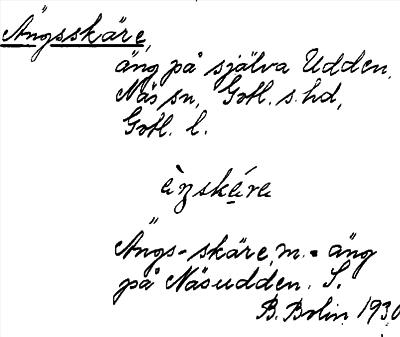 Ängsskäre,
äng på själva Udden,
Näs sn, Gotl. s. hd,
Gotl. l.
èŋskę́re
Ängs-skäre, m. = äng
på Näsudden. S.
B. Bolin 1930